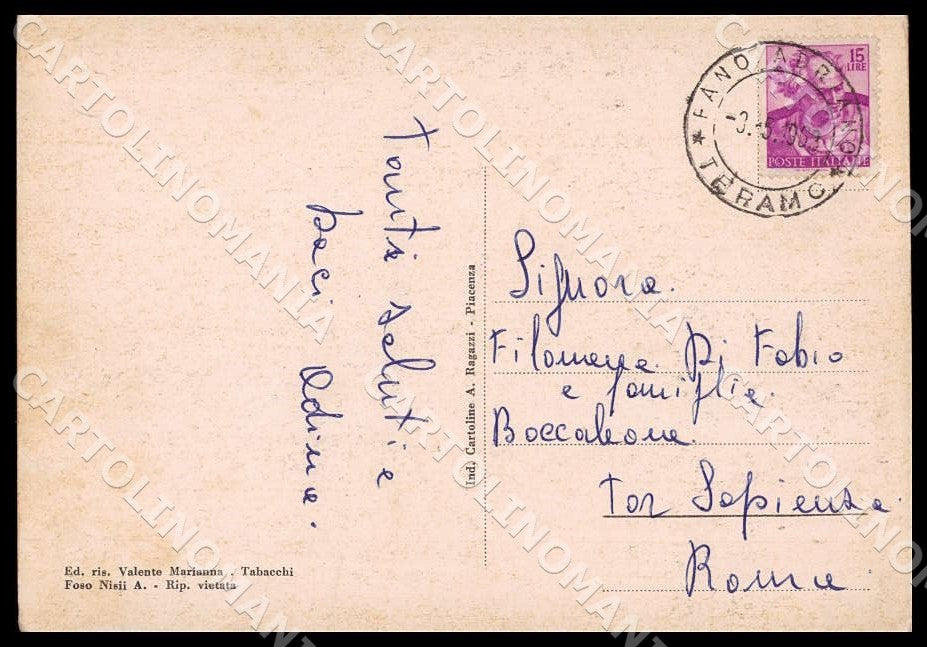 Tanti saluti e
baci Adina.
Ind. Cartoline A. Ragazzi - Piacenza
Ed. ris. Valente Marianna . Tabacchi
Foso Nisii A. - Rip. vietata
15
LIRE
POSTE ITALIANE
FANO ADRIANO
TERAMO
Signora.
Filomena Di Fabio
e famiglia.
Boccaleone.
Tor Sapienza.
Roma.
CARTOLINOMANIA
CARTOLINOMANIA
CARTOLINOMANIA
CARTOLINOMANIA
CARTOLINOMANIA
CARTOLINOMANIA